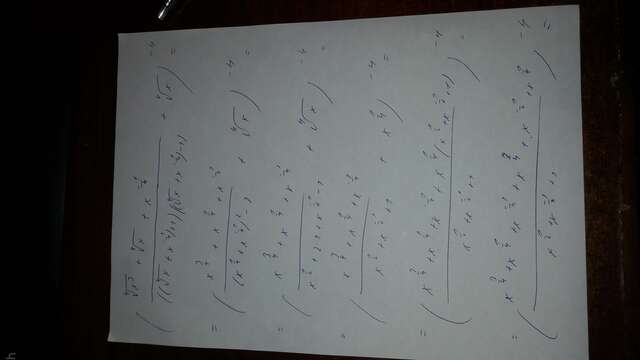 ( (⁴√x³ + ⁴√x + x^(-1/4)) / (((⁴√x + x^(-1/4))+1)((⁴√x + x^(-1/4))-1)) + ⁴√x )^(-4) =
= ( (x^(3/4) + x^(1/4) + x^(-1/4)) / ((x^(1/4) + x^(-1/4))² - 1) + ⁴√x )^(-4) =
= ( (x^(3/4) + x^(1/4) + x^(-1/4)) / (x^(1/2) + 2·1 + x^(-1/2) - 1) + ⁴√x )^(-4) =
= ( (x^(3/4) + x^(1/4) + x^(-1/4)) / (x^(1/2) + x^(-1/2) + 1) + x^(1/4) )^(-4) =
= ( (x^(3/4) + x^(1/4) + x^(-1/4) + x^(1/4)(x^(1/2) + x^(-1/2) + 1)) / (x^(1/2) + x^(-1/2) + 1) )^(-4) =
= ( (x^(3/4) + x^(1/4) + x^(-1/4) + x^(3/4) + x^(-1/4) + x^(1/4)) / (x^(1/2) + x^(-1/2) + 1) )^(-4) =